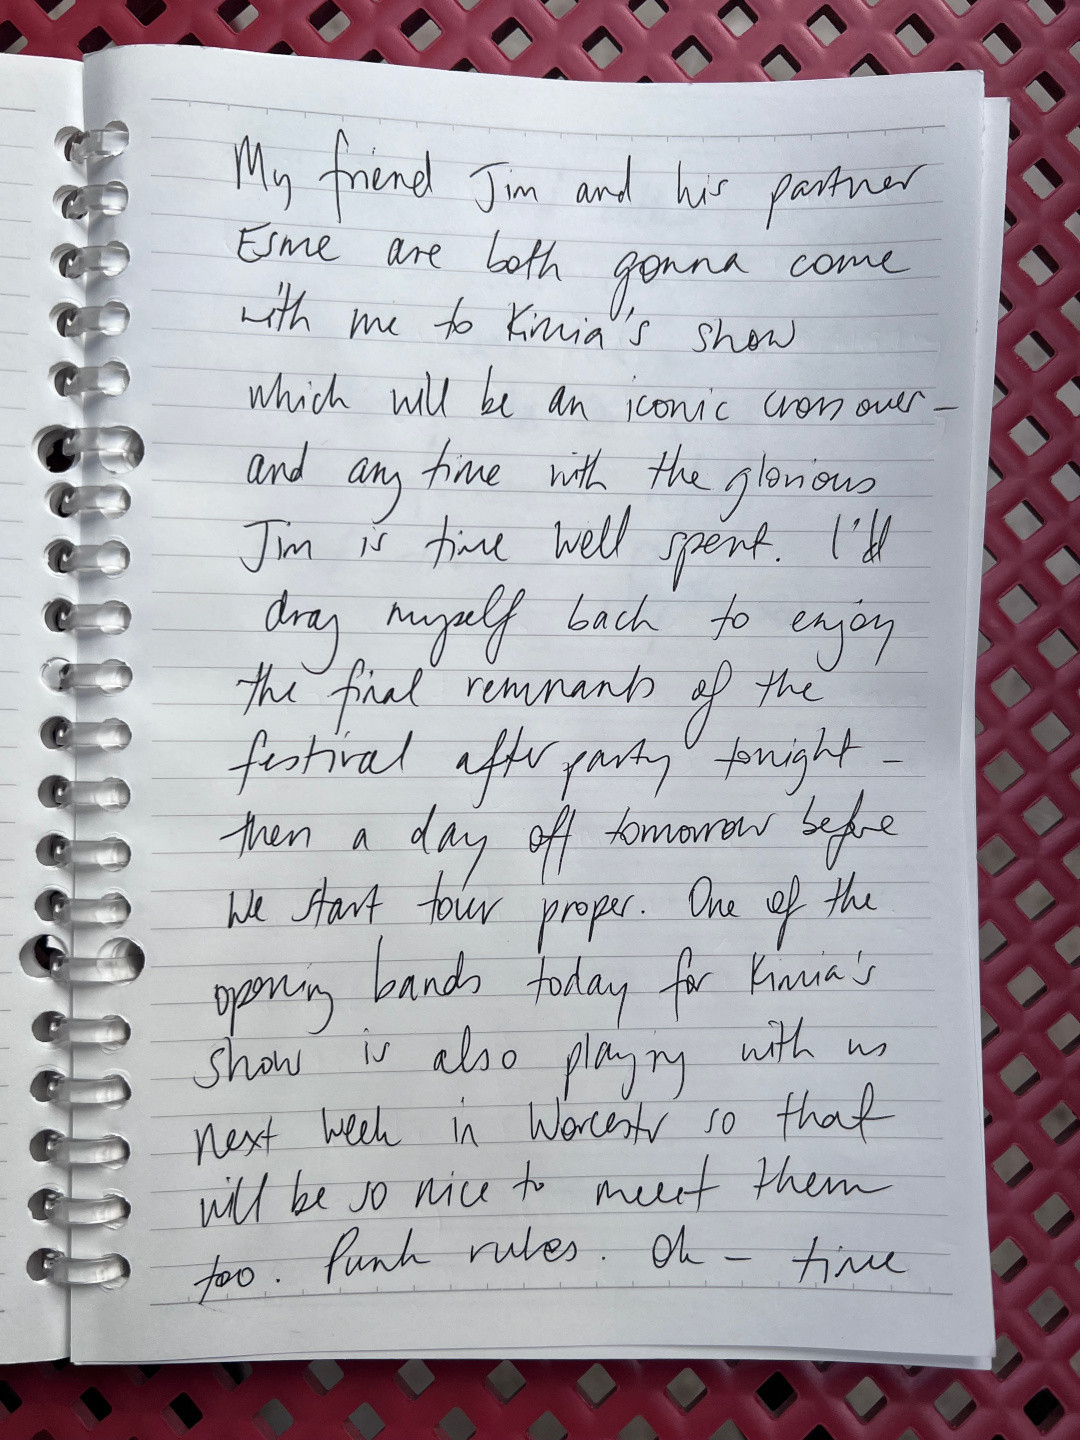 My friend Jim and his partner
Esme are both gonna come
with me to Kimia's show
which will be an iconic crossover –
and any time with the glorious
Jim is time well spent. I'll
drag myself back to enjoy
the final remnants of the
festival after party tonight –
then a day off tomorrow before
we start tour proper. One of the
opening bands today for Kimia's
show is also playing with us
next week in Worcester so that
will be so nice to meet them
too. Punk rules. Ok – time